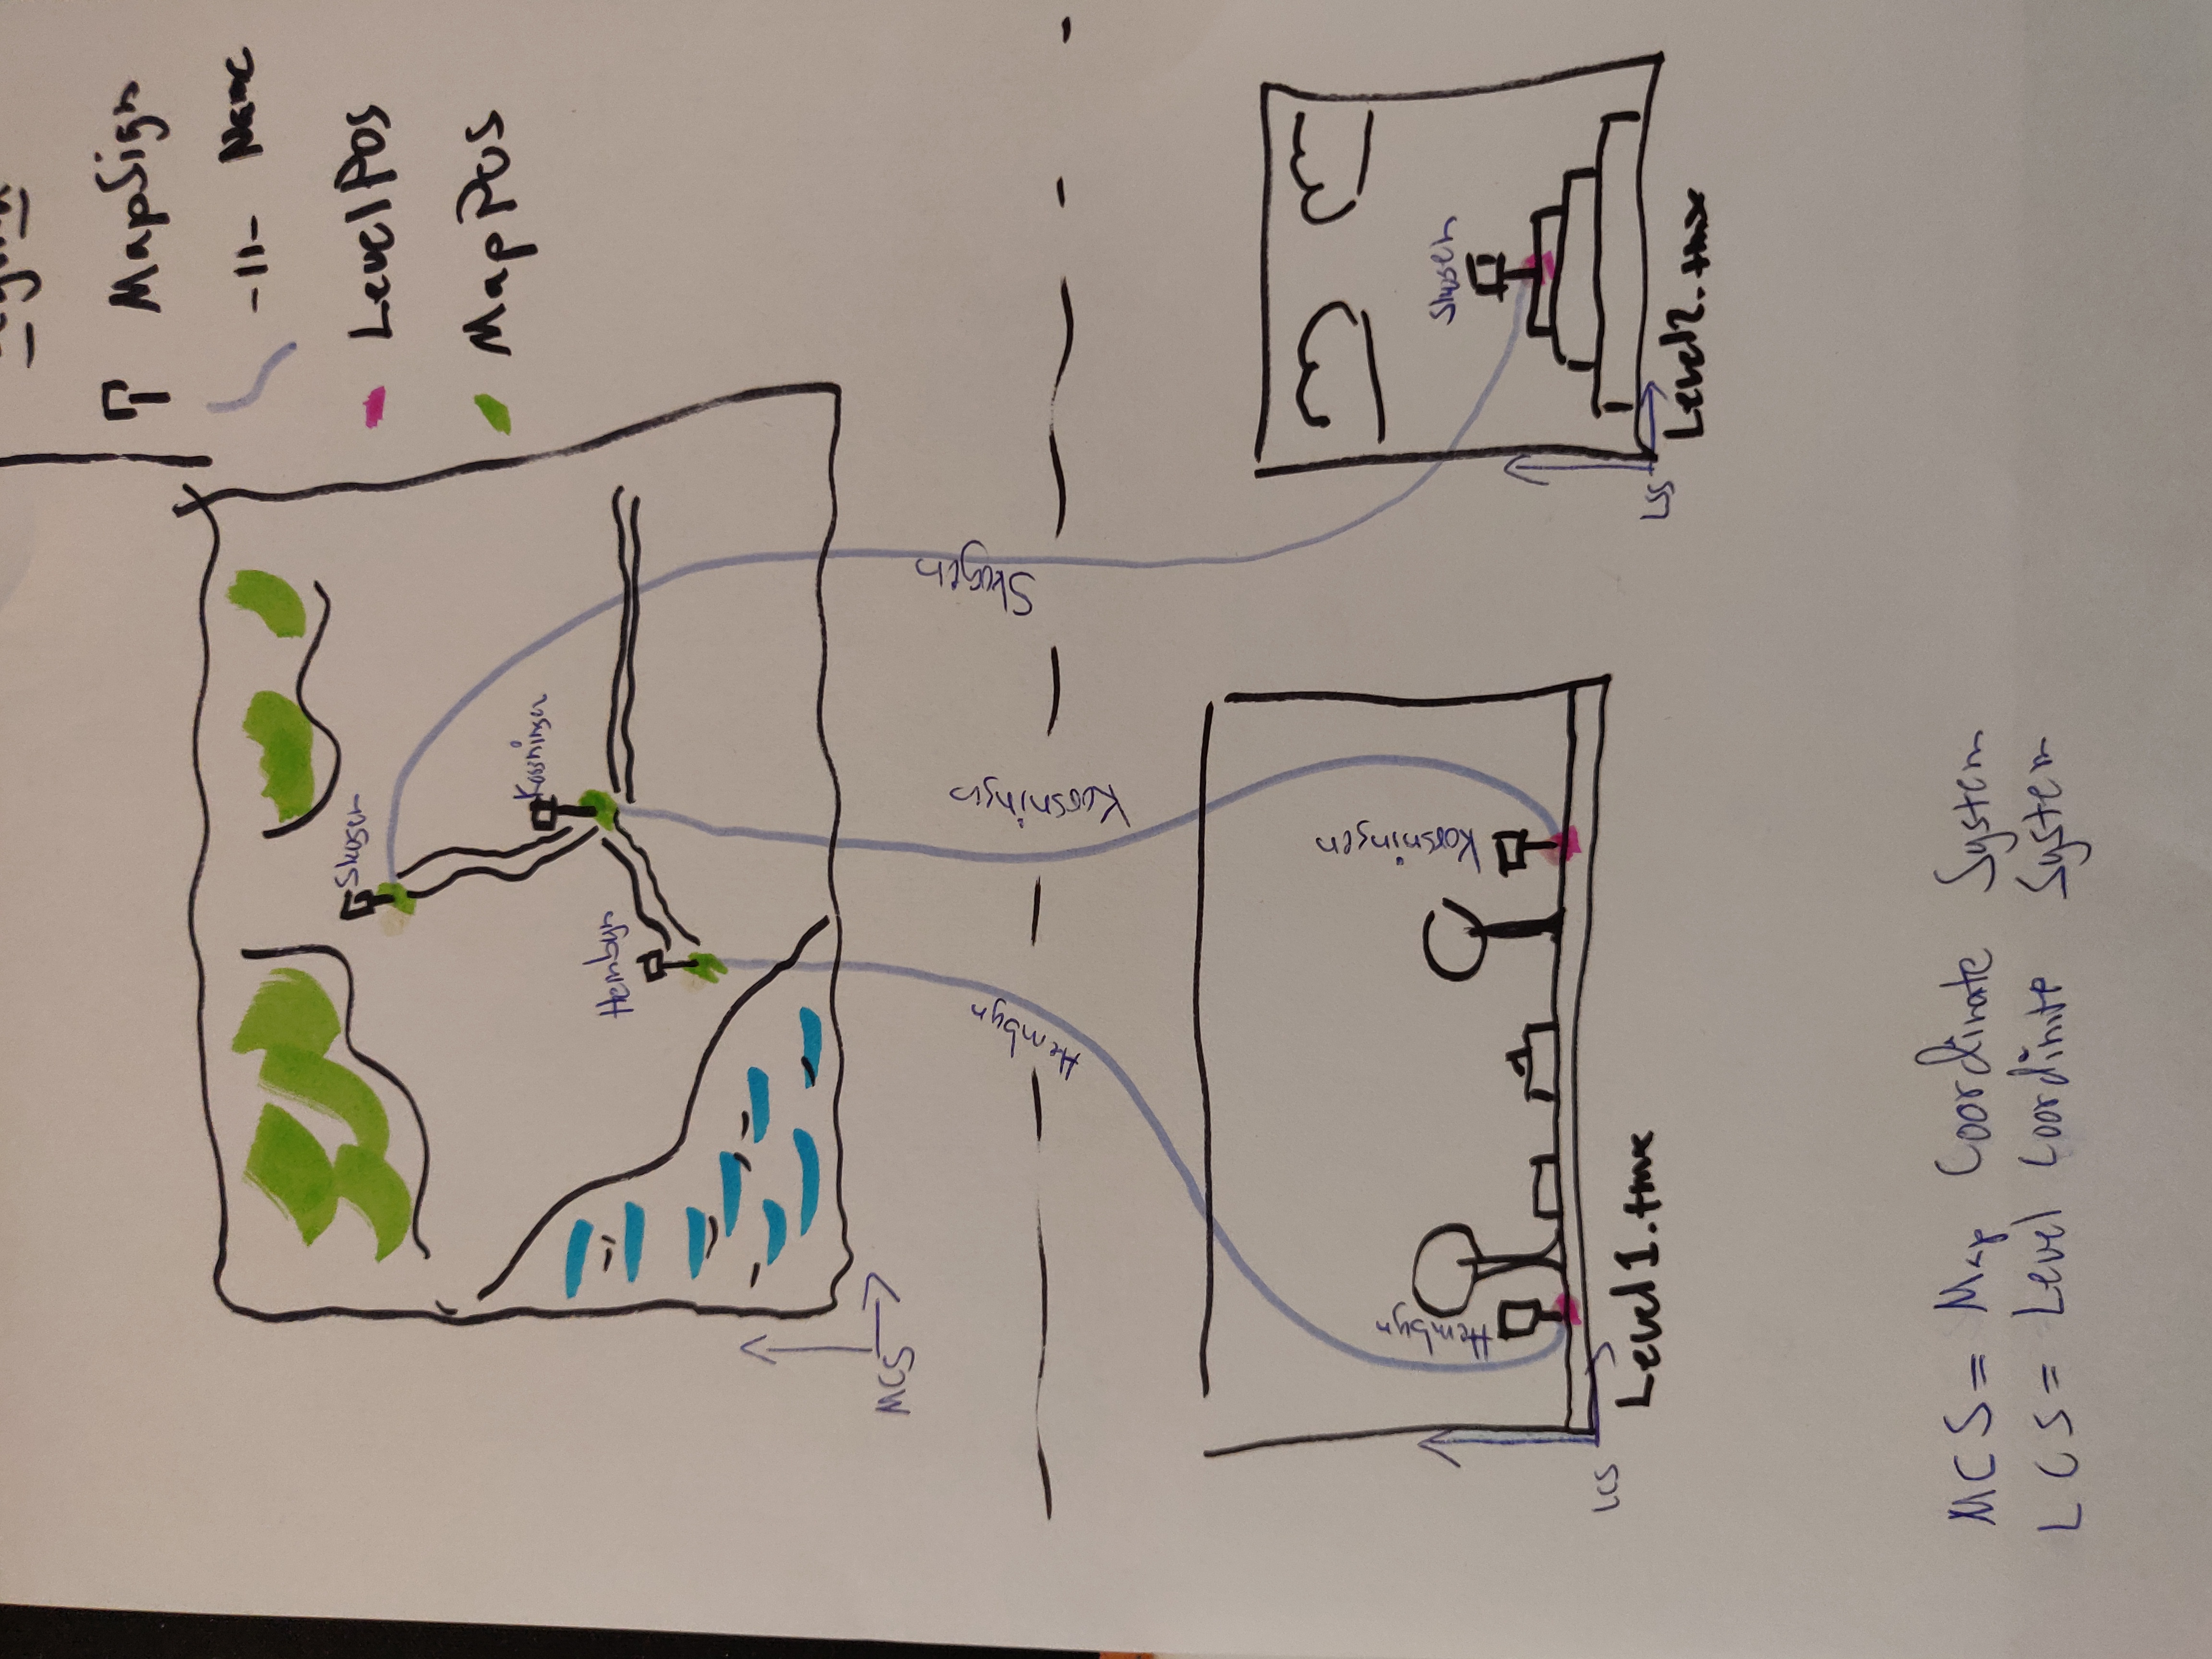 MapSign
-11- Name
LevelPos
MapPos
Skogen
Korsningen
Hembyn
MCS
Hembyn
Korsningn
Skogen
Hembyn
Korsningen
Skogen
LCS
Level1.tmx
LSS
Level2.tmx
MCS = Map Coordinate System
LCS = Level Coordinite System